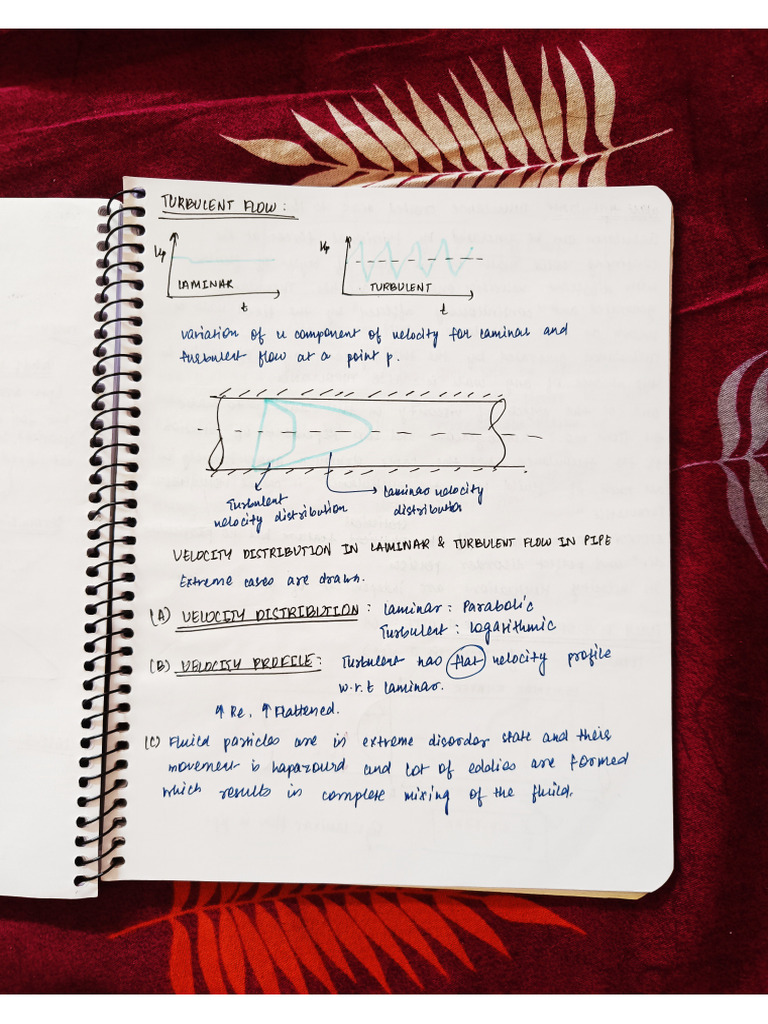 TURBULENT FLOW :
up
LAMINAR
t
up
TURBULENT
t
variation of u component of velocity for laminar and
turbulent flow at a point p.
Turbulent
velocity distribution
laminar velocity
distribution
VELOCITY DISTRIBUTION IN LAMINAR & TURBULENT FLOW IN PIPE
Extreme cases are drawn.
(A) VELOCITY DISTRIBUTION : laminar : Parabolic
Turbulent : logarithmic
(B) VELOCITY PROFILE : Turbulent has flat velocity profile
w.r.t laminar.
↑ Re, ↑ Flattened.
(C) Fluid particles are in extreme disorder state and their
movement is hapazourd and lot of eddies are formed
which results in complete mixing of the fluid.